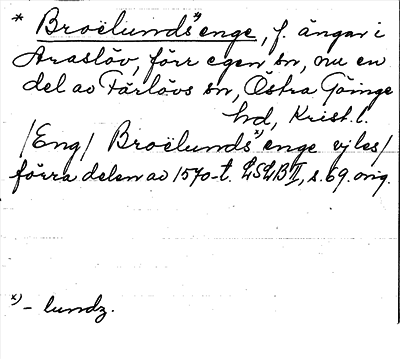 * Broëlunds˟⁾enge, f. ängar i
Araslöv, förr egen sn, nu en
del av Färlövs sn, Östra Göinge
hd, Krist. l.
/Eng/ Broëlunds˟⁾enge vj les/
förra delen av 1570-t. LSLB II, s. 69. orig.
x) – lundz.